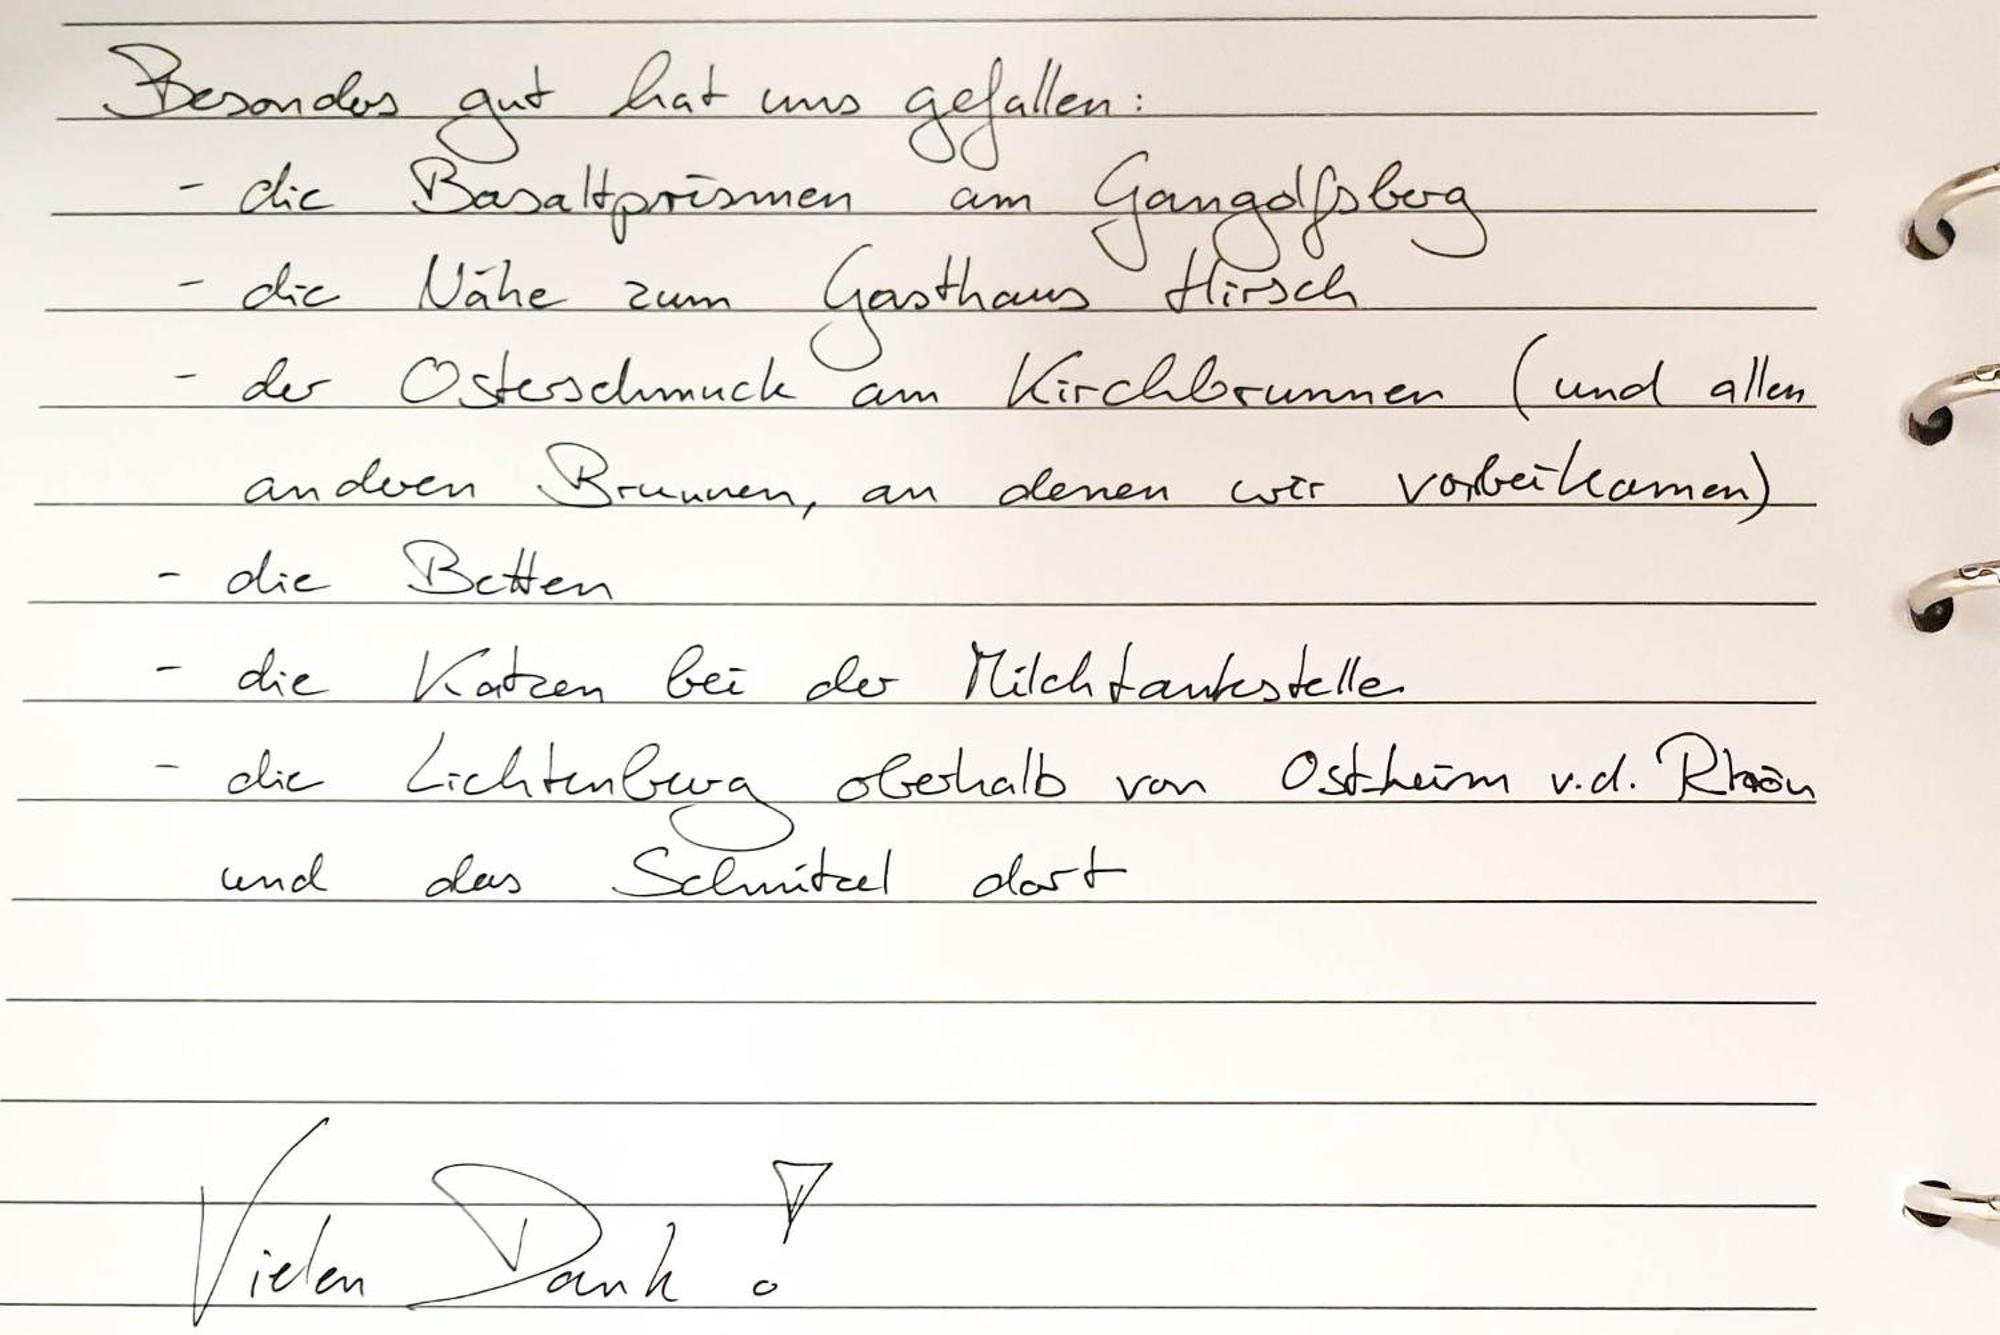 Besonders gut hat uns gefallen:
- die Basaltprismen am Gangolfsberg
- die Nähe zum Gasthaus Hirsch
- der Osterschmuck am Kirchbrunnen (und allen
anderen Brunnen, an denen wir vorbeikamen)
- die Betten
- die Katzen bei der Milchtankstelle
- die Lichtenburg oberhalb von Ostheim v.d. Rhön
und das Schnitzel dort
Vielen Dank!